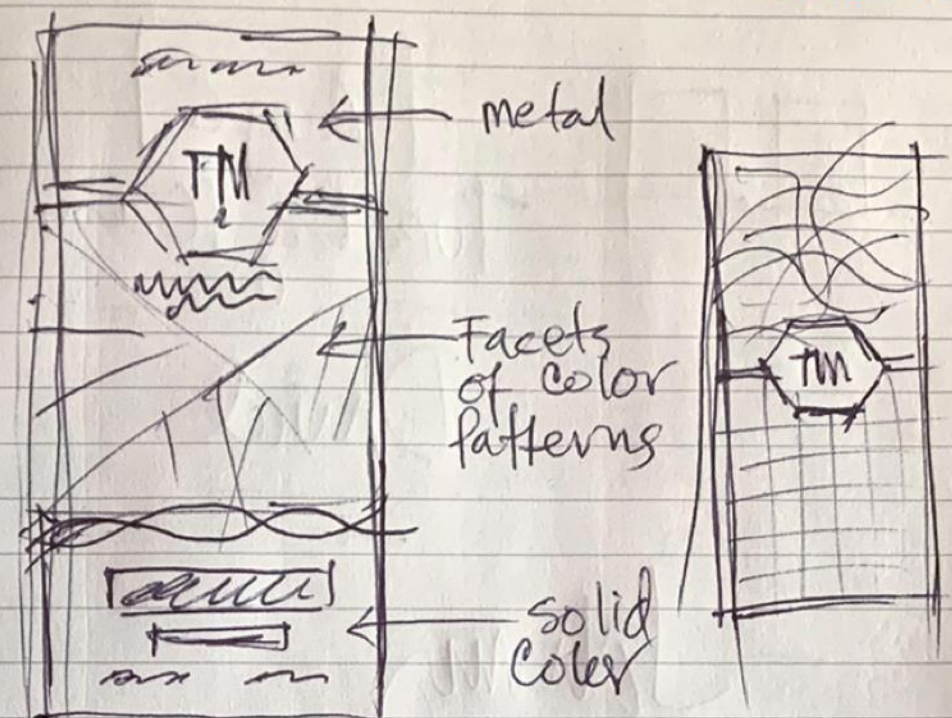 TM
metal
Facets
of Color
Patterns
TM
Solid
Color